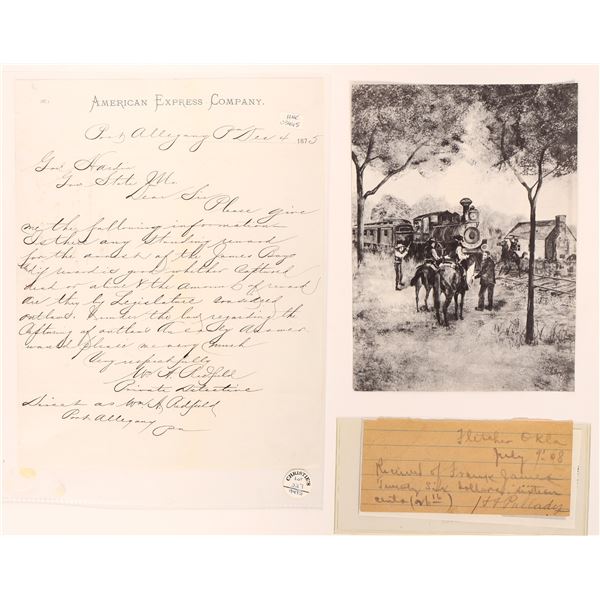 AMERICAN EXPRESS COMPANY.
Port Allegany Pa Dec 4 1875
Gov Hardin
Gov State of Mo
Dear Sir
Please give
me the following information
Is there any standing reward
for the arrest of the James Boys
& if reward is good whether captured
dead or alive & the amount of reward
are they by Legislature considered
outlaws. Under the law regarding the
Capturing of outlaws An early answer
would please me very much
Very respectfully
Wm A Redfield
Private Detective
Direct as Wm A Redfield
Port Allegany
Pa
CHRISTIE'S
Lot
227
Fletcher Okla
July 9. 08
Received of Frank James
Twenty Six dollars sixteen
cents (26 16)